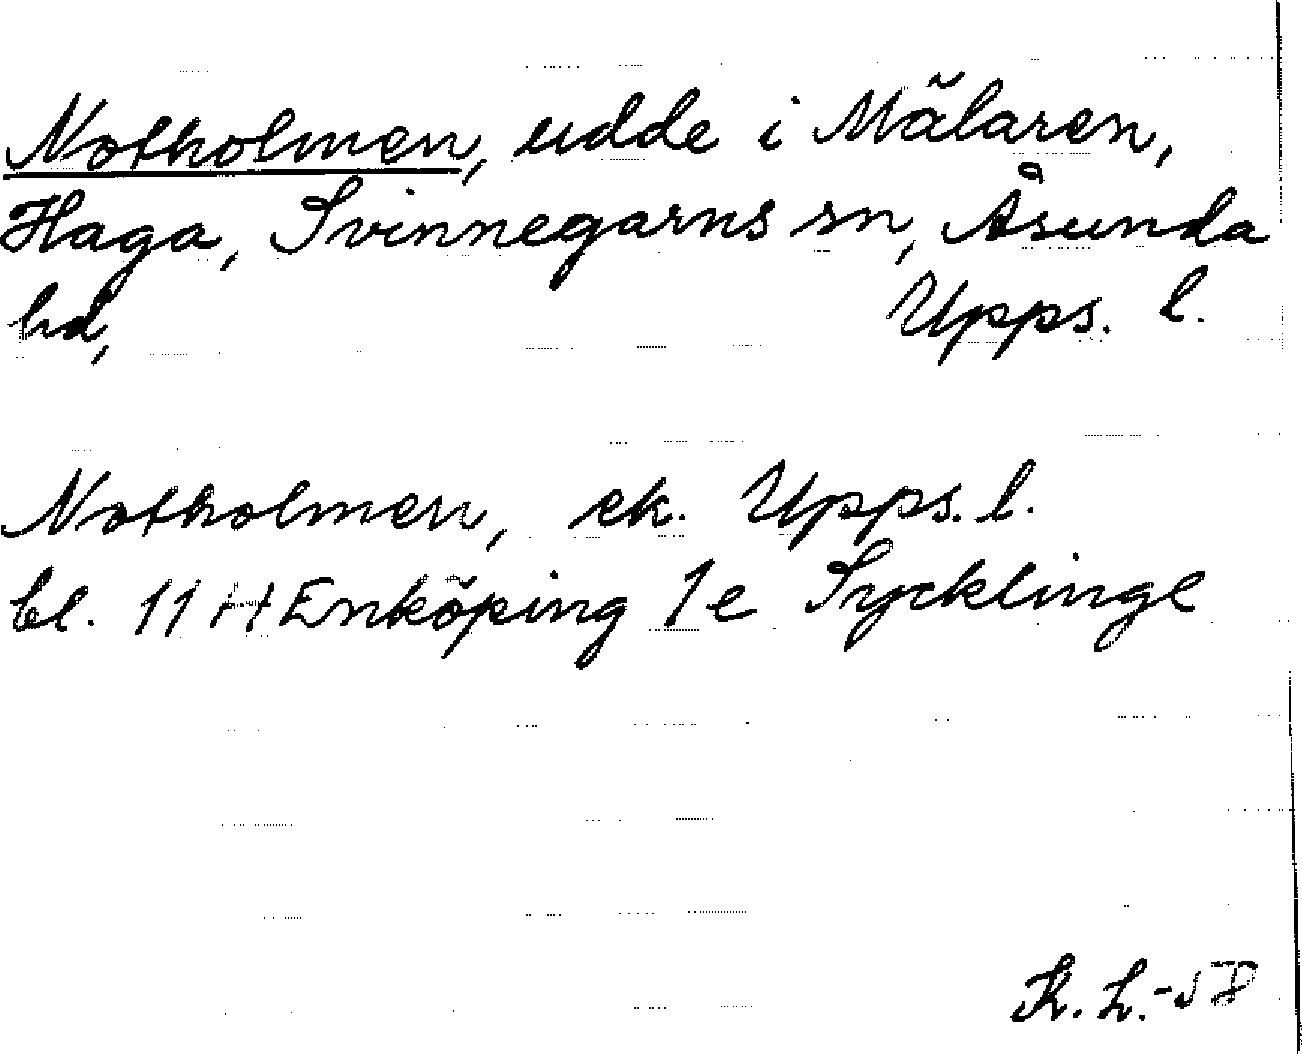 Notholmen, udde i Mälaren,
Haga, Svinnegarns sn, Åsunda
hd, Upps. l.
Notholmen, ek. Upps. l.
bl. 11 H Enköping 1e Sycklinge
K. L.